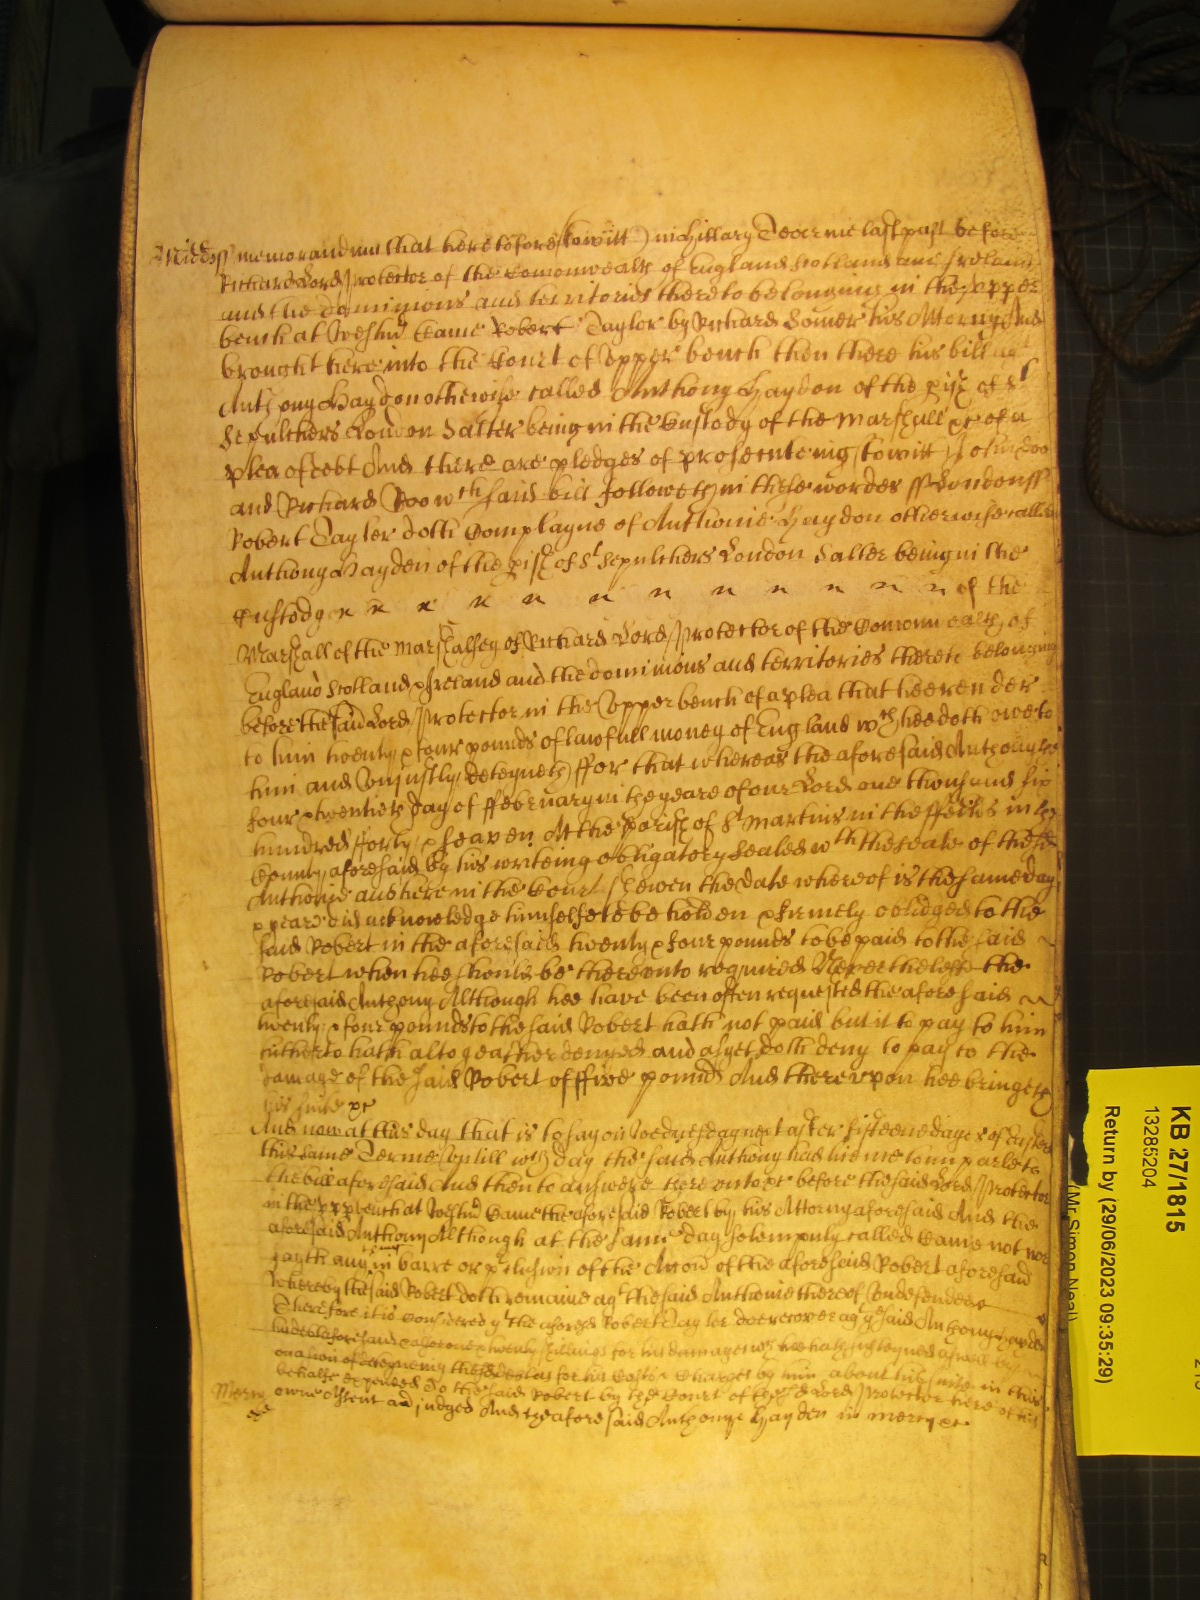 Midds ss memorandum that heretofore (towitt) in Hillary Tearme last past before
Richard Lord Protector of the Comonwealth of England Scotland and Ireland
and the dominions and territories thereto belonging in the upper
bench at Westmr Came Robert Taylor by Richard Somer his Attorny And
brought here into the Court of upper bench then there his bill agt
Anthony Haydon otherwise called Anthony Haydon of the pish of St
Sepulchers London Salter being in the Custody of the Marshall &c of a
plea of debt And there are pledges of prosecuteing (towitt) John Doo
and Richard Roo wch said bill followeth in these wordes ss London ss
Robert Tayler doth Complayne of Anthonie Haydon otherwise called
Anthony Hayden of the pish of St Sepulchers London Salter being in the
Custody of the
Marshall of the Marshalsey of Richard Lord Protector of the Comonwealth of
England Scotland & Ireland and the dominions and territories thereto belonging
before the said Lord Protector in the Upper bench of a plea that hee render
to him twenty & four pounds of lawfull money of England wch hee doth owe to
him and Unjustly deteyneth ffor that whereas the aforesaid Anthony the
four & twentieth day of ffebruary in the yeare of our Lord one thousand six
hundred fforty & seaven At the parish of St Martins in the ffeilds in the
County aforesaid by his writeing obligatory sealed wth the seale of the sd
Anthonie and here in the Court shewen the date whereof is the same day
& yeare did acknowledge himselfe to be holden & firmely obliged to the
said Robert in the aforesaid twenty & four pounds to be paid to the said
Robert when hee should be thereunto required Neverthelesse the
aforesaid Anthony Although hee have been often requested the aforesaid
twenty & four pounds to the said Robert hath not paid but it to pay to him
hitherto hath altogeather denyed and as yet doth deny to pay to the
damage of the said Robert of ffive pounds And thereupon hee bringeth
his suite &c
And now at this day that is to say on Wednesday next after fifteene dayes of Easter
this same Terme Untill wch day the said Anthony had lycence to imparle to
the bill aforesaid And then to answere thereunto &c before the said Lord Protector
in the upp bench at Westmr Came the aforesaid Robert by his Attorny aforesaid And the
aforesaid Anthony Although at the same day solempnly called Came not nor
sayth any thing in barre or p'clusion of the Accon of the aforesaid Robert aforesaid
Whereby the said Robert doth remaine agt the said Anthonie thereof Undefended
Therefore it is Considered yt the aforesd Robert Tayler doe recover agt ye said Anthony Hayden
his debt aforesaid & alsoe one & twenty shillings for his damages wch hee hath susteyned aswell by
occasion of deteyneing the sd debt as for his Costs & Charges by him about his suite in this
behalfe expended To the said Robert by the Court of the sd Lord Protector here of his
owne Assent adjudged And the aforesaid Anthonye Hayden in mercy &c
Mercy
KB 27/1815
13285204
Return by (29/06/2023 09:35:29)
(Mr Simon Neal)